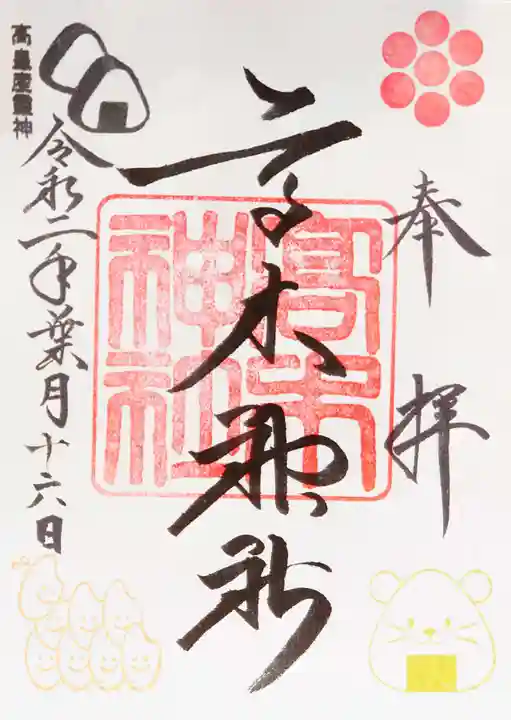 奉拝
高木神社
高木神社
令和二年葉月十六日
高皇産霊神